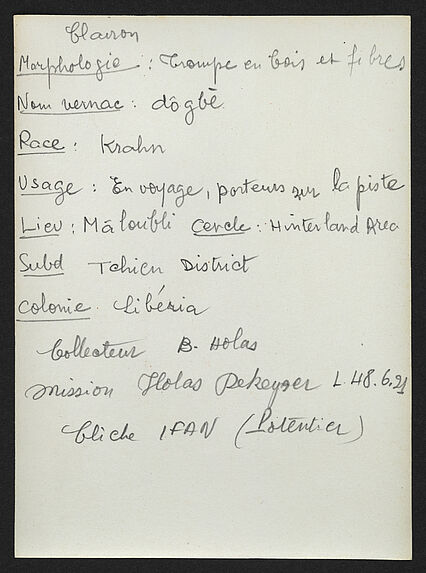 Clairon
Morphologie : Trompe en bois et fibres
Nom vernac : dôgbè
Race : Krahn
Usage : En voyage, porteurs sur la piste
Lieu : Mâloubli Cercle : Hinterland Area
Subd Tchien District
Colonie. Libéria
Collecteur B. Holas
Mission Holas Dekeyser L.48.6.21
Cliche IFAN (Potentier)